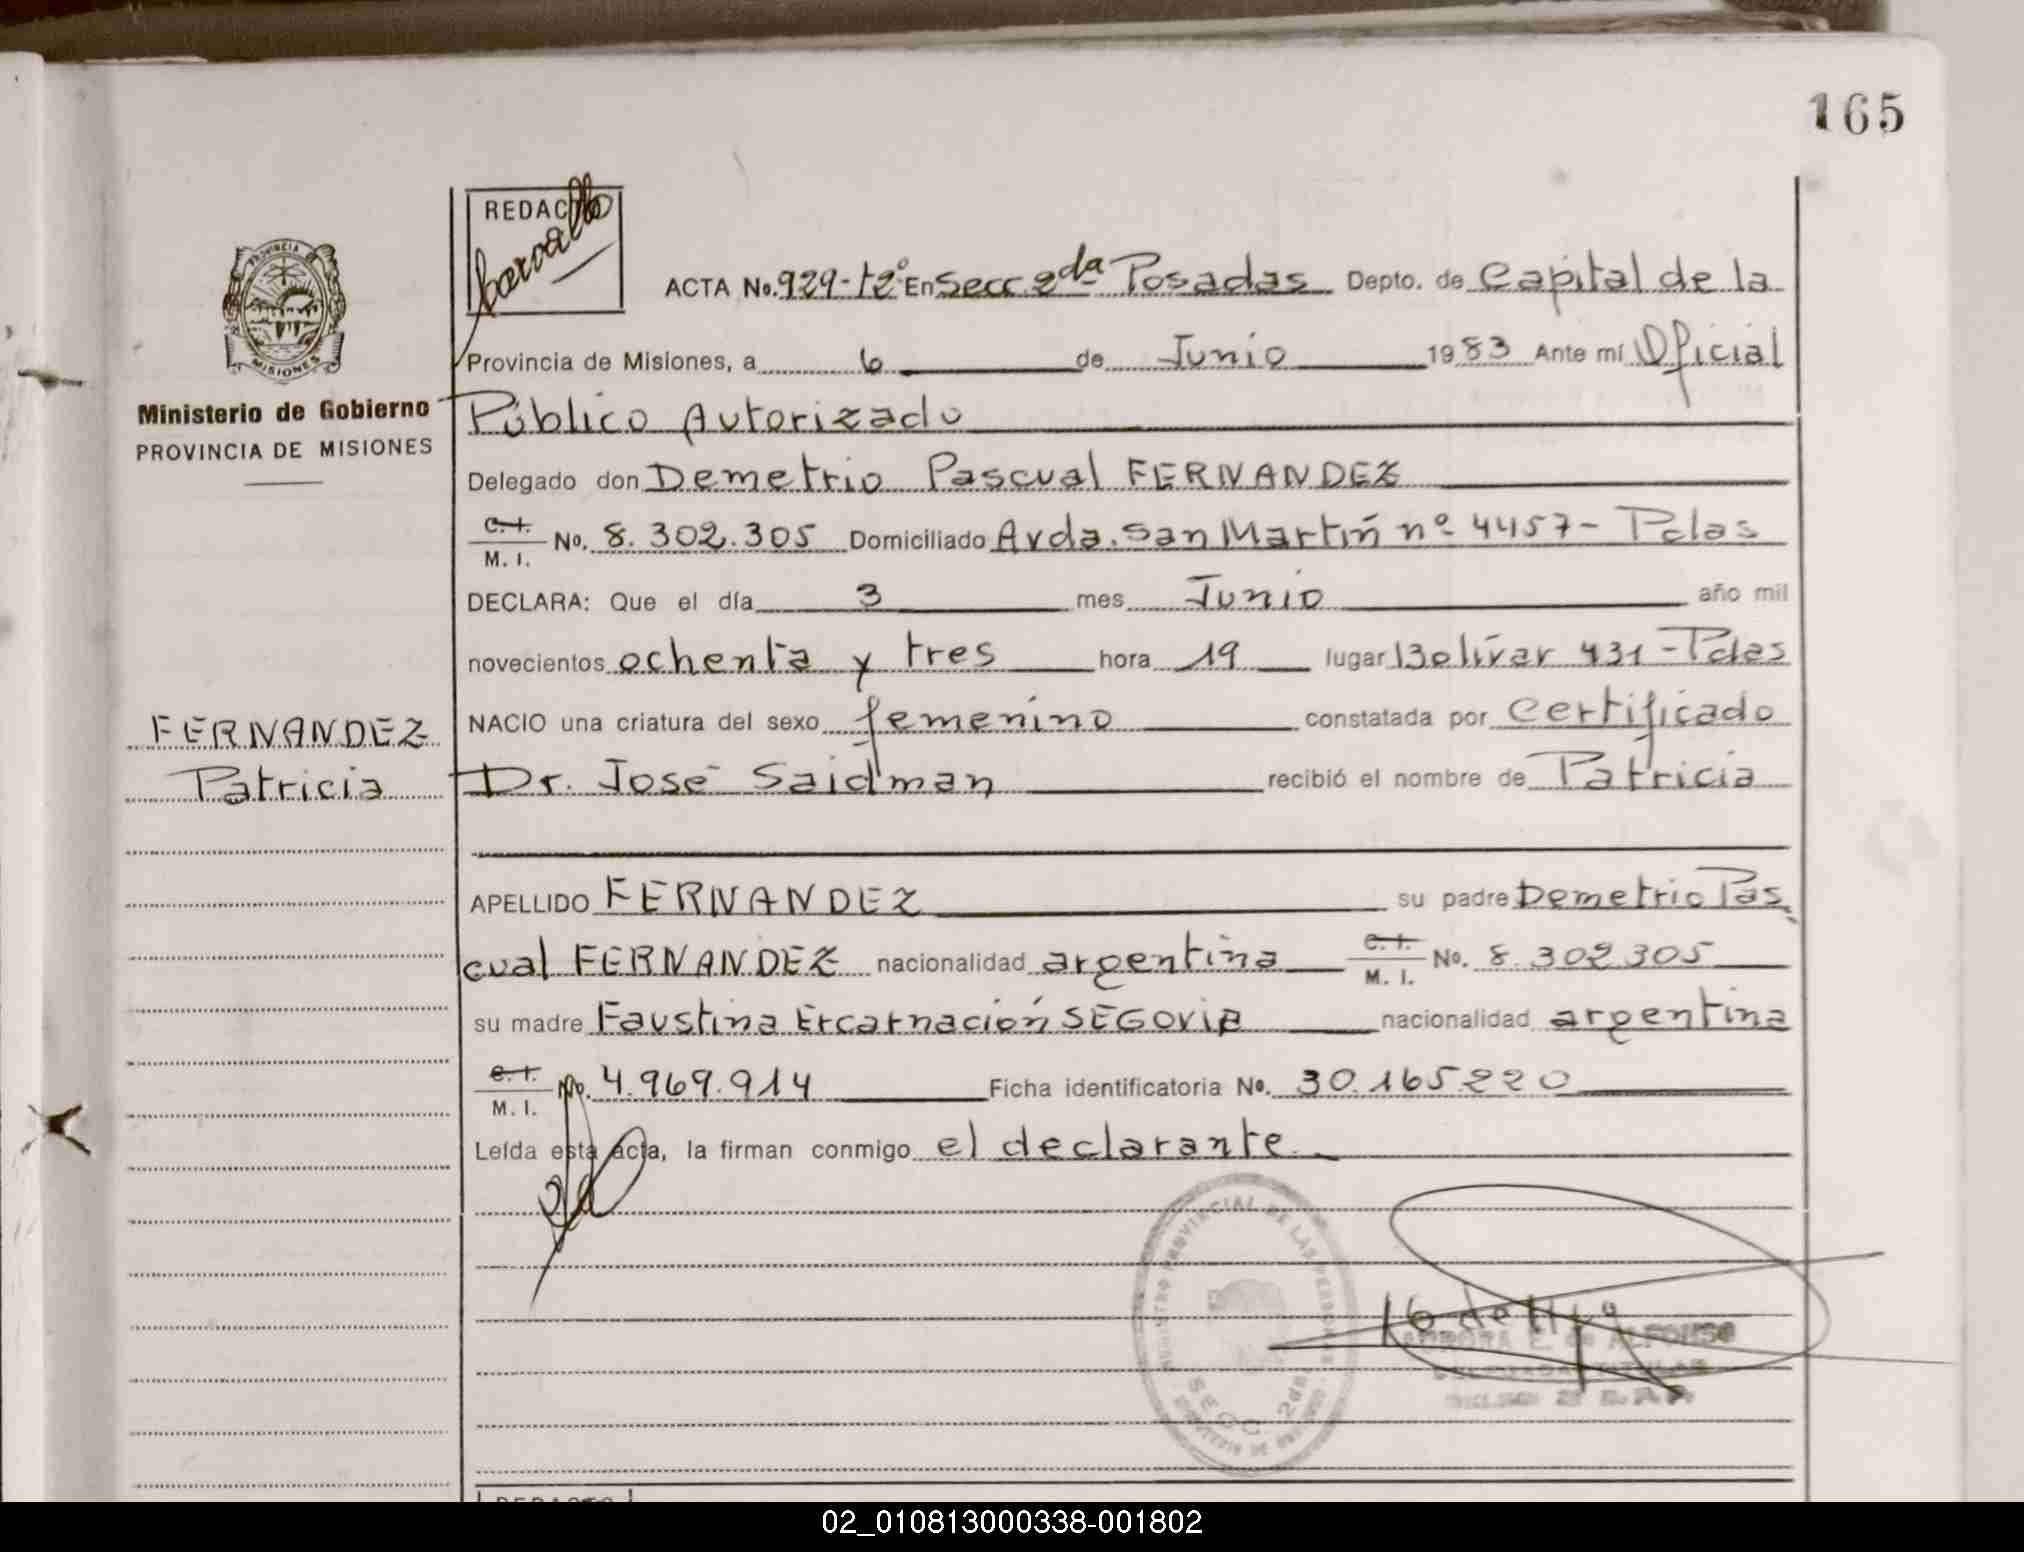 165
REDACTO
Carvallo
PROVINCIA
MISIONES
ACTA No. 929-t2º En Secc. 2da Posadas Depto. de Capital de la
Provincia de Misiones, a 6 de Junio 1983 Ante mí Oficial
Ministerio de Gobierno
PROVINCIA DE MISIONES
Público Autorizado
Delegado don Demetrio Pascual FERNANDEZ
C.I. M. I. No. 8.302.305 Domiciliado Avda. San Martín nº 4457- Pdas
DECLARA: Que el día 3 mes Junio año mil
novecientos ochenta y tres hora 19 lugar Bolívar 431-Pdas
FERNANDEZ
Patricia
NACIO una criatura del sexo femenino constatada por certificado
Dr. José Saidman recibió el nombre de Patricia
APELLIDO FERNANDEZ su padre Demetrio Pas
cual FERNANDEZ nacionalidad argentina C.I. M. I. No. 8.302.305
su madre Faustina Ercarnación SEGOVIA nacionalidad argentina
C.I. M. I. No. 4.969.914 Ficha identificatoria No. 30.165.220
Leída esta acta, la firman conmigo el declarante.
REGISTRO PROVINCIAL DE LAS PERSONAS
SECC. 2da.
DE ALFONSO
REDACTO
02_010813000338-001802